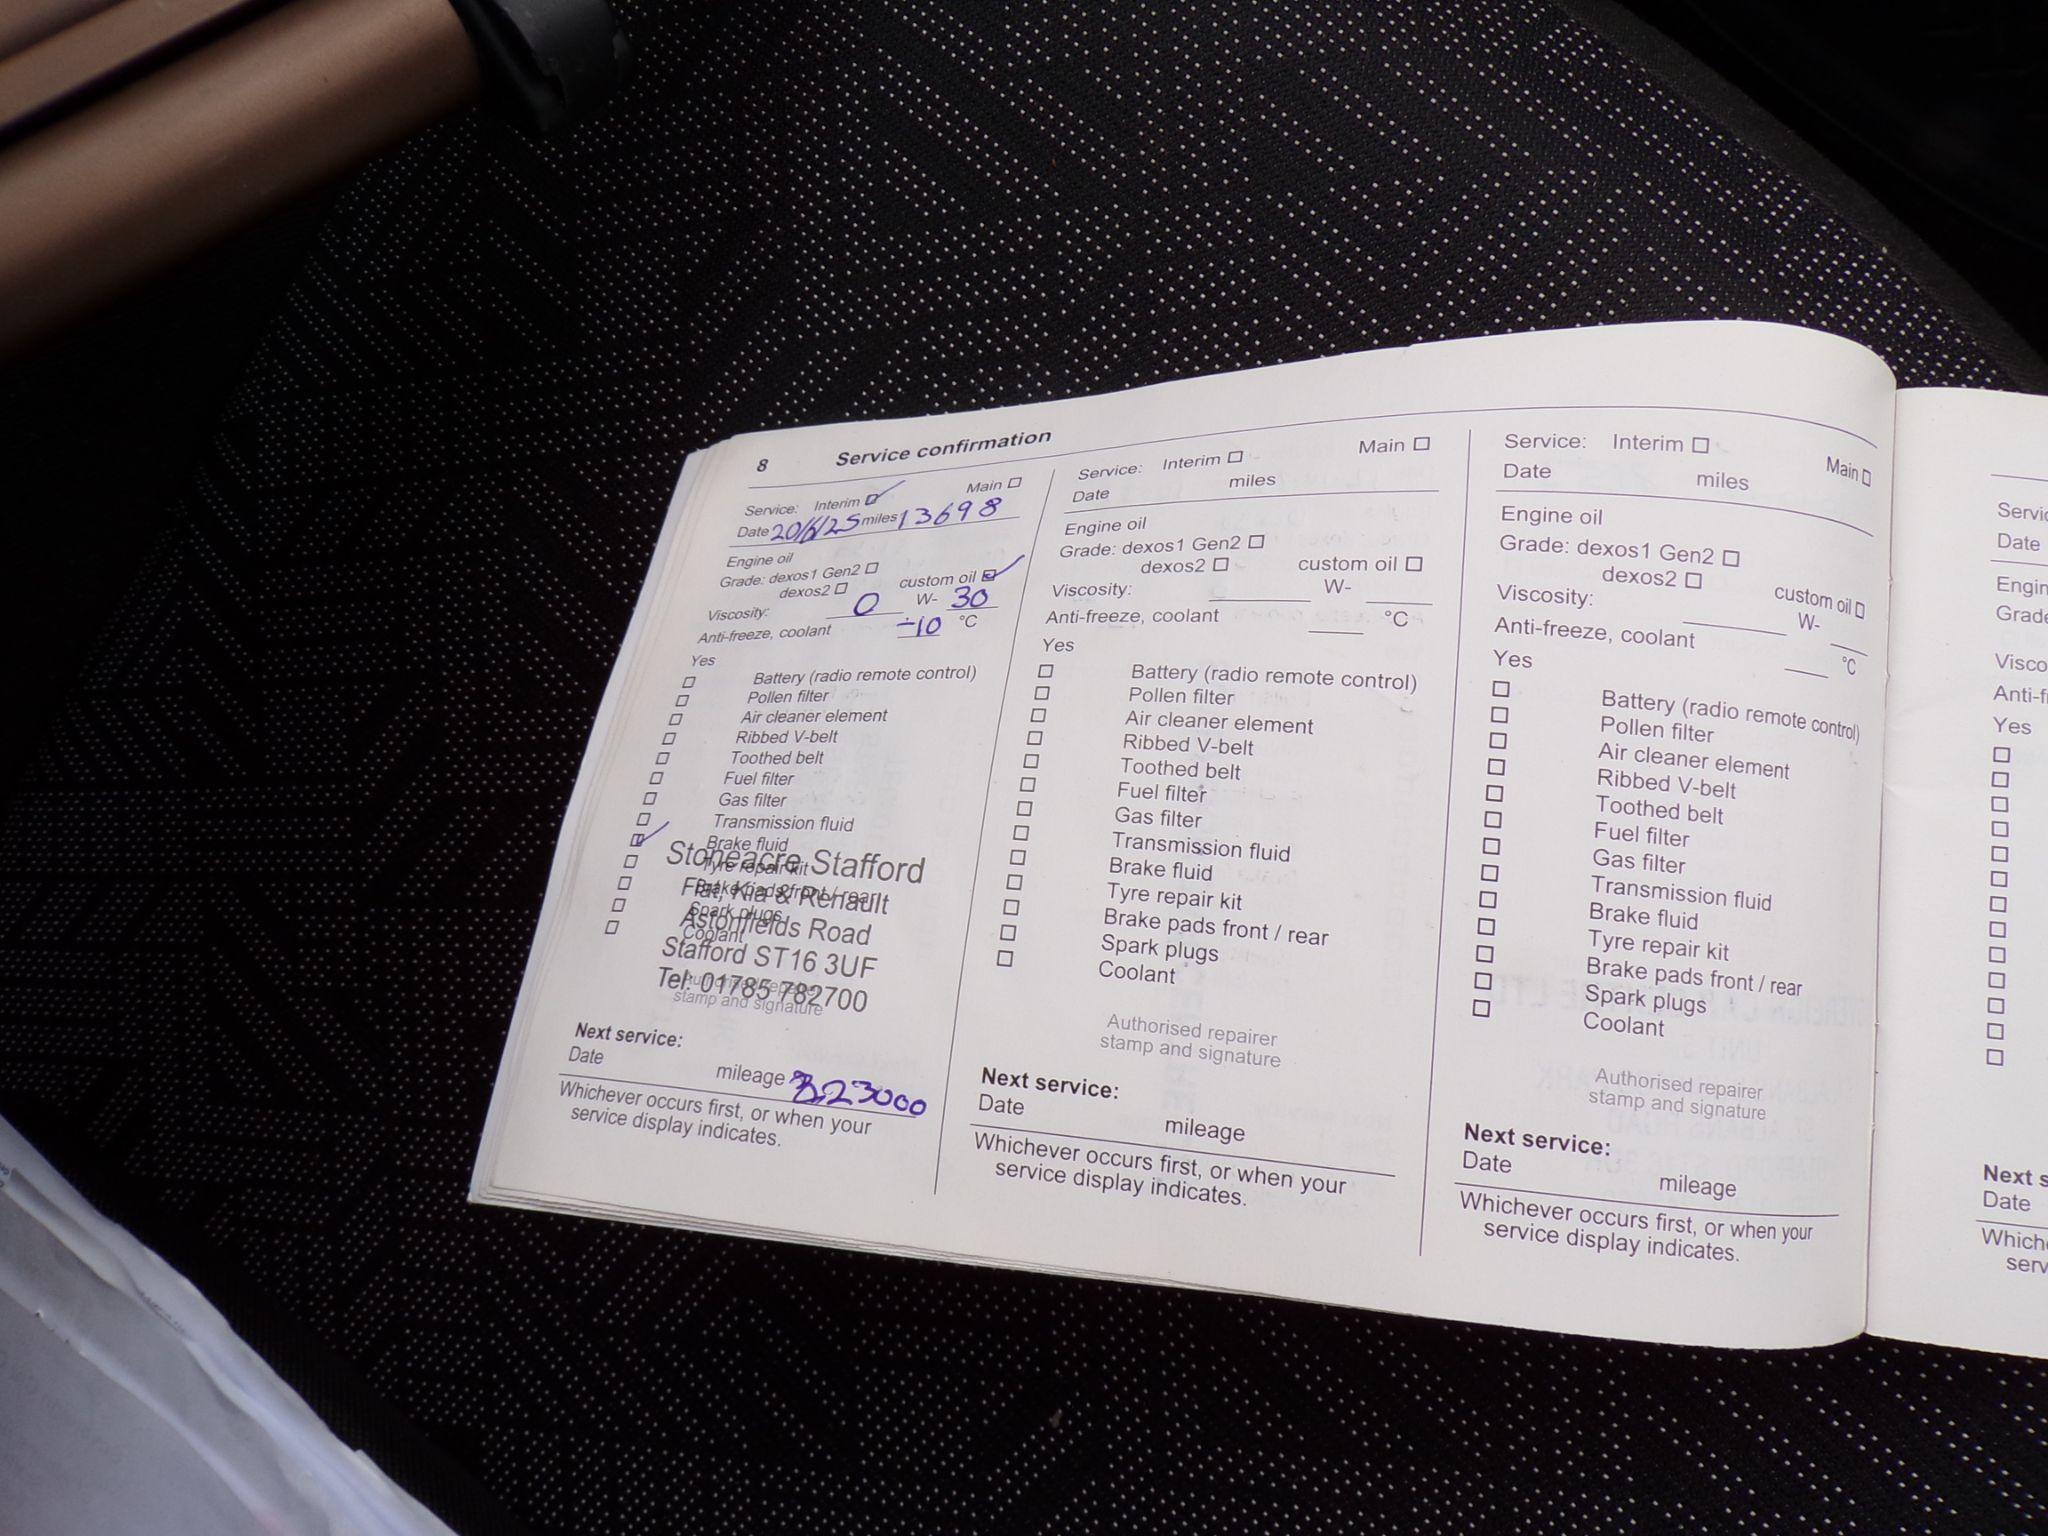 8 Service confirmation
Service: Interim Main
Date 20/6/25 miles 13698
Engine oil
Grade: dexos1 Gen2
dexos2 custom oil
Viscosity: 0 W- 30
Anti-freeze, coolant -10 °C
Yes
Battery (radio remote control)
Pollen filter
Air cleaner element
Ribbed V-belt
Toothed belt
Fuel filter
Gas filter
Transmission fluid
Brake fluid
Tyre repair kit
Brake pads front / rear
Spark plugs
Coolant
Stoneacre Stafford
Fiat, Kia & Renault
Astonfields Road
Stafford ST16 3UF
Tel: 01785 782700
Authorised repairer
stamp and signature
Next service:
Date
mileage 23000
Whichever occurs first, or when your
service display indicates.
Service: Interim Main
Date miles
Engine oil
Grade: dexos1 Gen2
dexos2 custom oil
Viscosity: W-
Anti-freeze, coolant °C
Yes
Battery (radio remote control)
Pollen filter
Air cleaner element
Ribbed V-belt
Toothed belt
Fuel filter
Gas filter
Transmission fluid
Brake fluid
Tyre repair kit
Brake pads front / rear
Spark plugs
Coolant
Authorised repairer
stamp and signature
Next service:
Date
mileage
Whichever occurs first, or when your
service display indicates.
Service: Interim Main
Date miles
Engine oil
Grade: dexos1 Gen2
dexos2 custom oil
Viscosity: W-
Anti-freeze, coolant °C
Yes
Battery (radio remote control)
Pollen filter
Air cleaner element
Ribbed V-belt
Toothed belt
Fuel filter
Gas filter
Transmission fluid
Brake fluid
Tyre repair kit
Brake pads front / rear
Spark plugs
Coolant
Authorised repairer
stamp and signature
Next service:
Date
mileage
Whichever occurs first, or when your
service display indicates.
Date
Yes
Next
Date